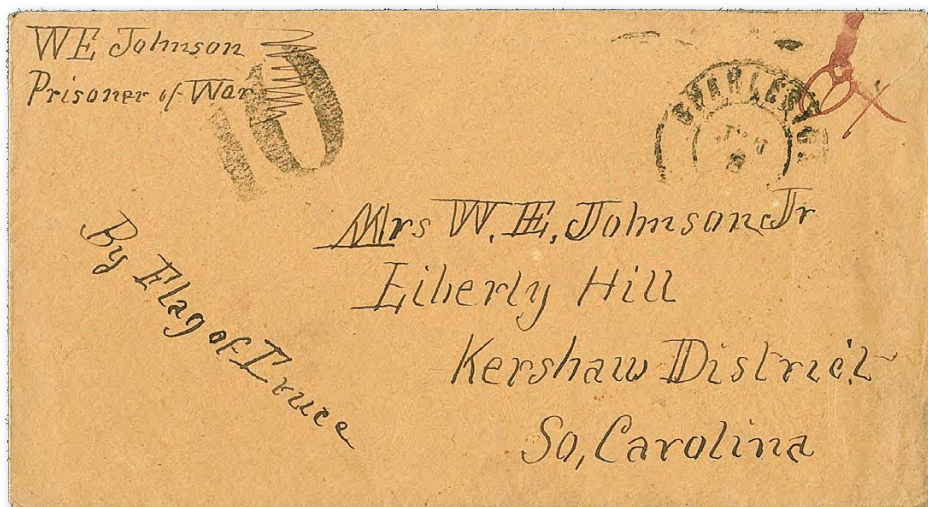 WE Johnson
Prisoner of War
10
CHARLESTON
By Flag of Truce
Mrs W. E. Johnson Jr
Liberty Hill
Kershaw District
So, Carolina